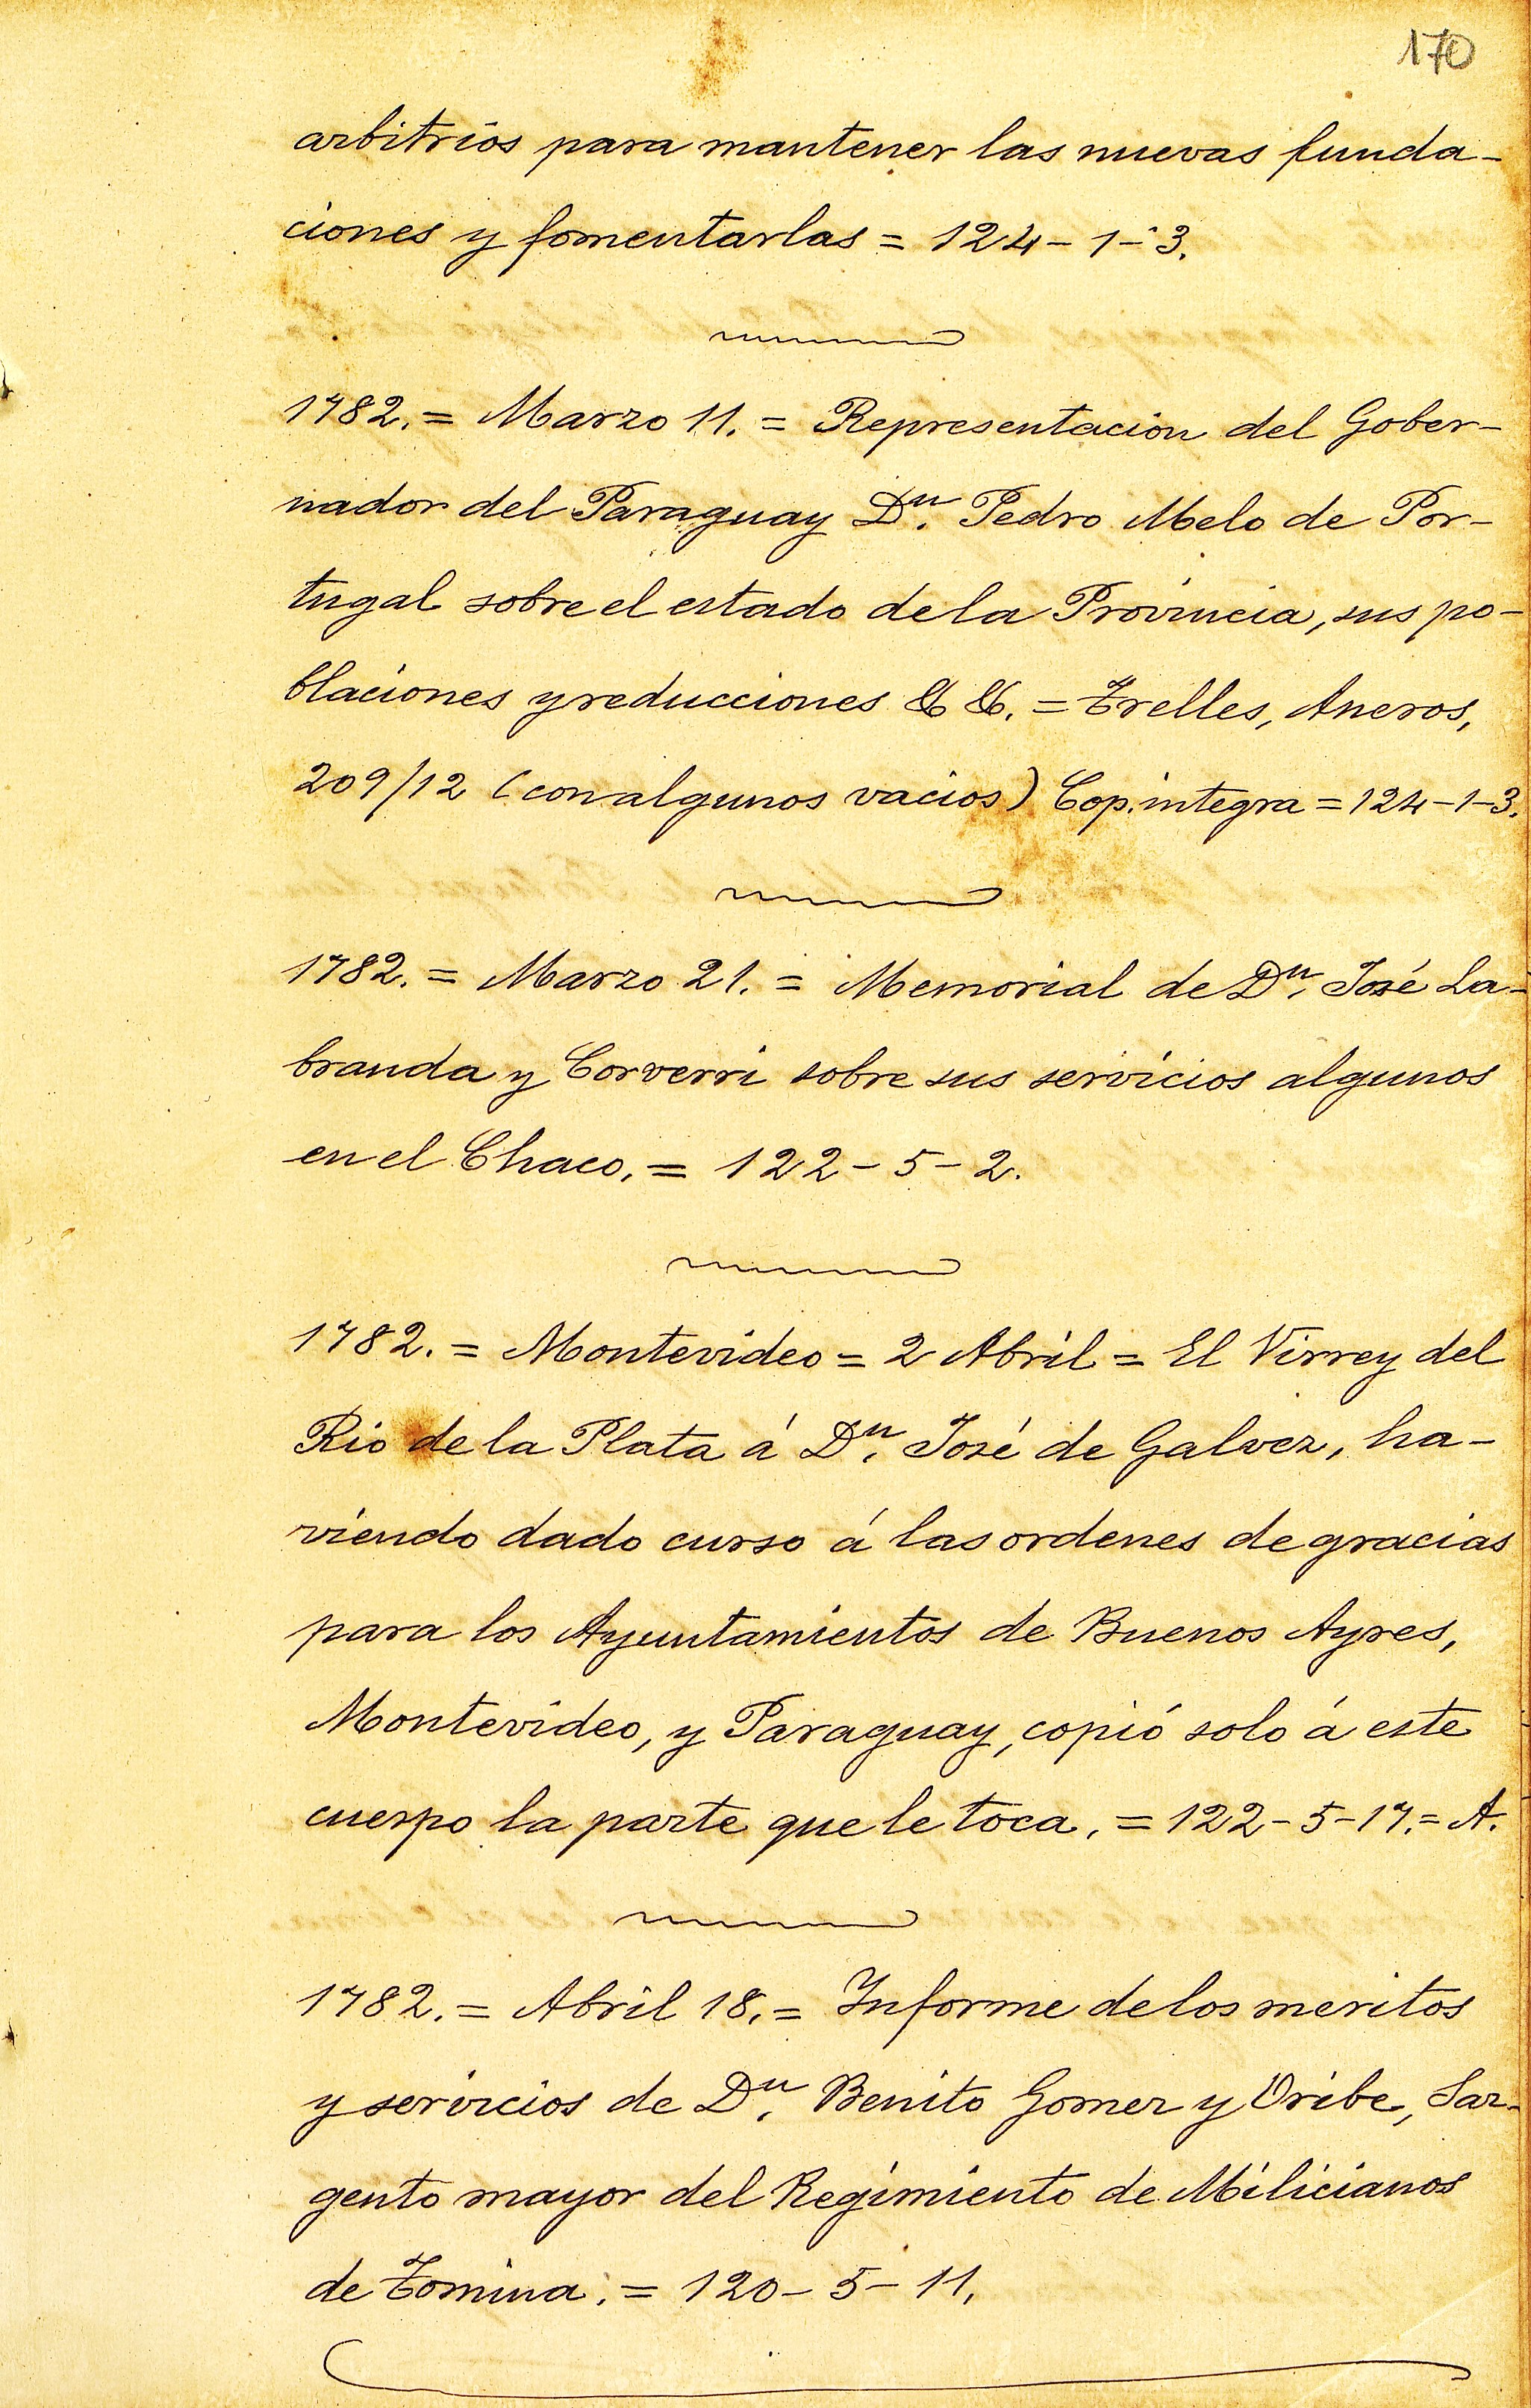 170
arbitrios para mantener las nuevas funda-
ciones y fomentarlas = 124-1-3.
1782. = Marzo 11. = Representacion del Gober-
nador del Paraguay Dn. Pedro Melo de Por-
tugal sobre el estado de la Provincia, sus po-
blaciones y reducciones & &. = Trelles, Aneros,
209/12 (con algunos vacios) Cop. integra = 124-1-3.
1782. = Marzo 21. = Memorial de Dn. José La-
branda y Corverri sobre sus servicios algunos
en el Chaco. = 122-5-2.
1782. = Montevideo = 2 Abril = El Virrey del
Rio de la Plata á Dn. José de Galvez, ha-
viendo dado curso á las ordenes de gracias
para los Ayuntamientos de Buenos Ayres,
Montevideo, y Paraguay, copió solo á este
cuerpo la parte que le toca. = 122-5-17. = A.
1782. = Abril 18. = Informe de los meritos
y servicios de Dn. Benito Gomez y Oribe, Sar-
gento mayor del Regimiento de Milicianos
de Tomina. = 120-5-11.